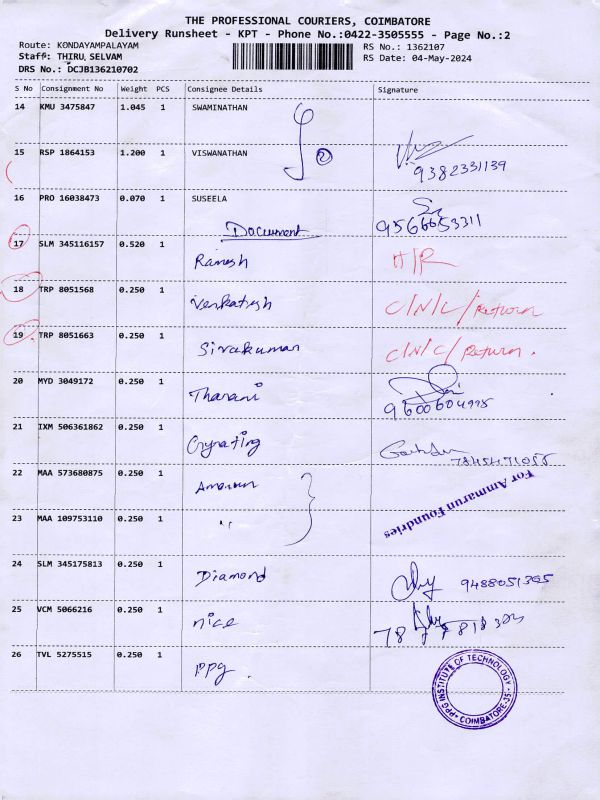 THE PROFESSIONAL COURIERS, COIMBATORE
Delivery Runsheet - KPT - Phone No.:0422-3505555 - Page No.:2
Route: KONDAYAMPALAYAM
Staff: THIRU, SELVAM
DRS No.: DCJB136210702
RS No.: 1362107
RS Date: 04-May-2024
S No Consignment No Weight PCS Consignee Details Signature
14 KMU 3475847 1.045 1 SWAMINATHAN
15 RSP 1864153 1.200 1 VISWANATHAN 2
9382331139
16 PRO 16038473 0.070 1 SUSEELA
Document 9566653311
17 SLM 345116157 0.520 1
Ramesh H/R
18 TRP 8051568 0.250 1
Venkatesh C/N/L/Return
19 TRP 8051663 0.250 1
Sivakumar C/N/C/Return.
20 MYD 3049172 0.250 1
Tharani 9600604995
21 IXM 506361862 0.250 1
22 MAA 573680875 0.250 1
For Ammarun Foundries
23 MAA 109753110 0.250 1
"
24 SLM 345175813 0.250 1
Diamond 9488051365
25 VCM 5066216 0.250 1
nice
26 TVL 5275515 0.250 1
PPg.
PPG INSTITUTE OF TECHNOLOGY
COIMBATORE-35